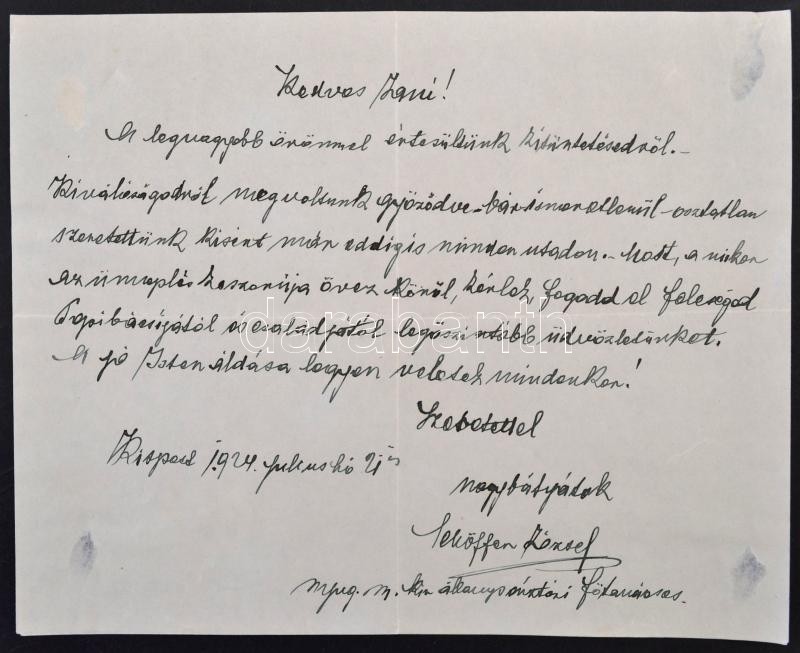 Kedves Zani!
A legnagyobb örömmel értesültünk kitüntetésedről.-
Kiválóságodról megvoltunk győződve - bár ismeretlenül - osztatlan
szeretettünk kisért már eddigis minden utadon.- Most, a mikor
az ünneplés koszorúja övez körül, kérlek, fogadd el feleséged
Pepibácsijától és családjától legőszintébb üdvözletünket.
A jó Isten áldása legyen veletek mindenkor!
Szeretettel
Kispest 1924. julius hó 21 én
nagybátyátok
Schöffer József
nyug. m. kir. állampénztári főtanácsos.
darabanth